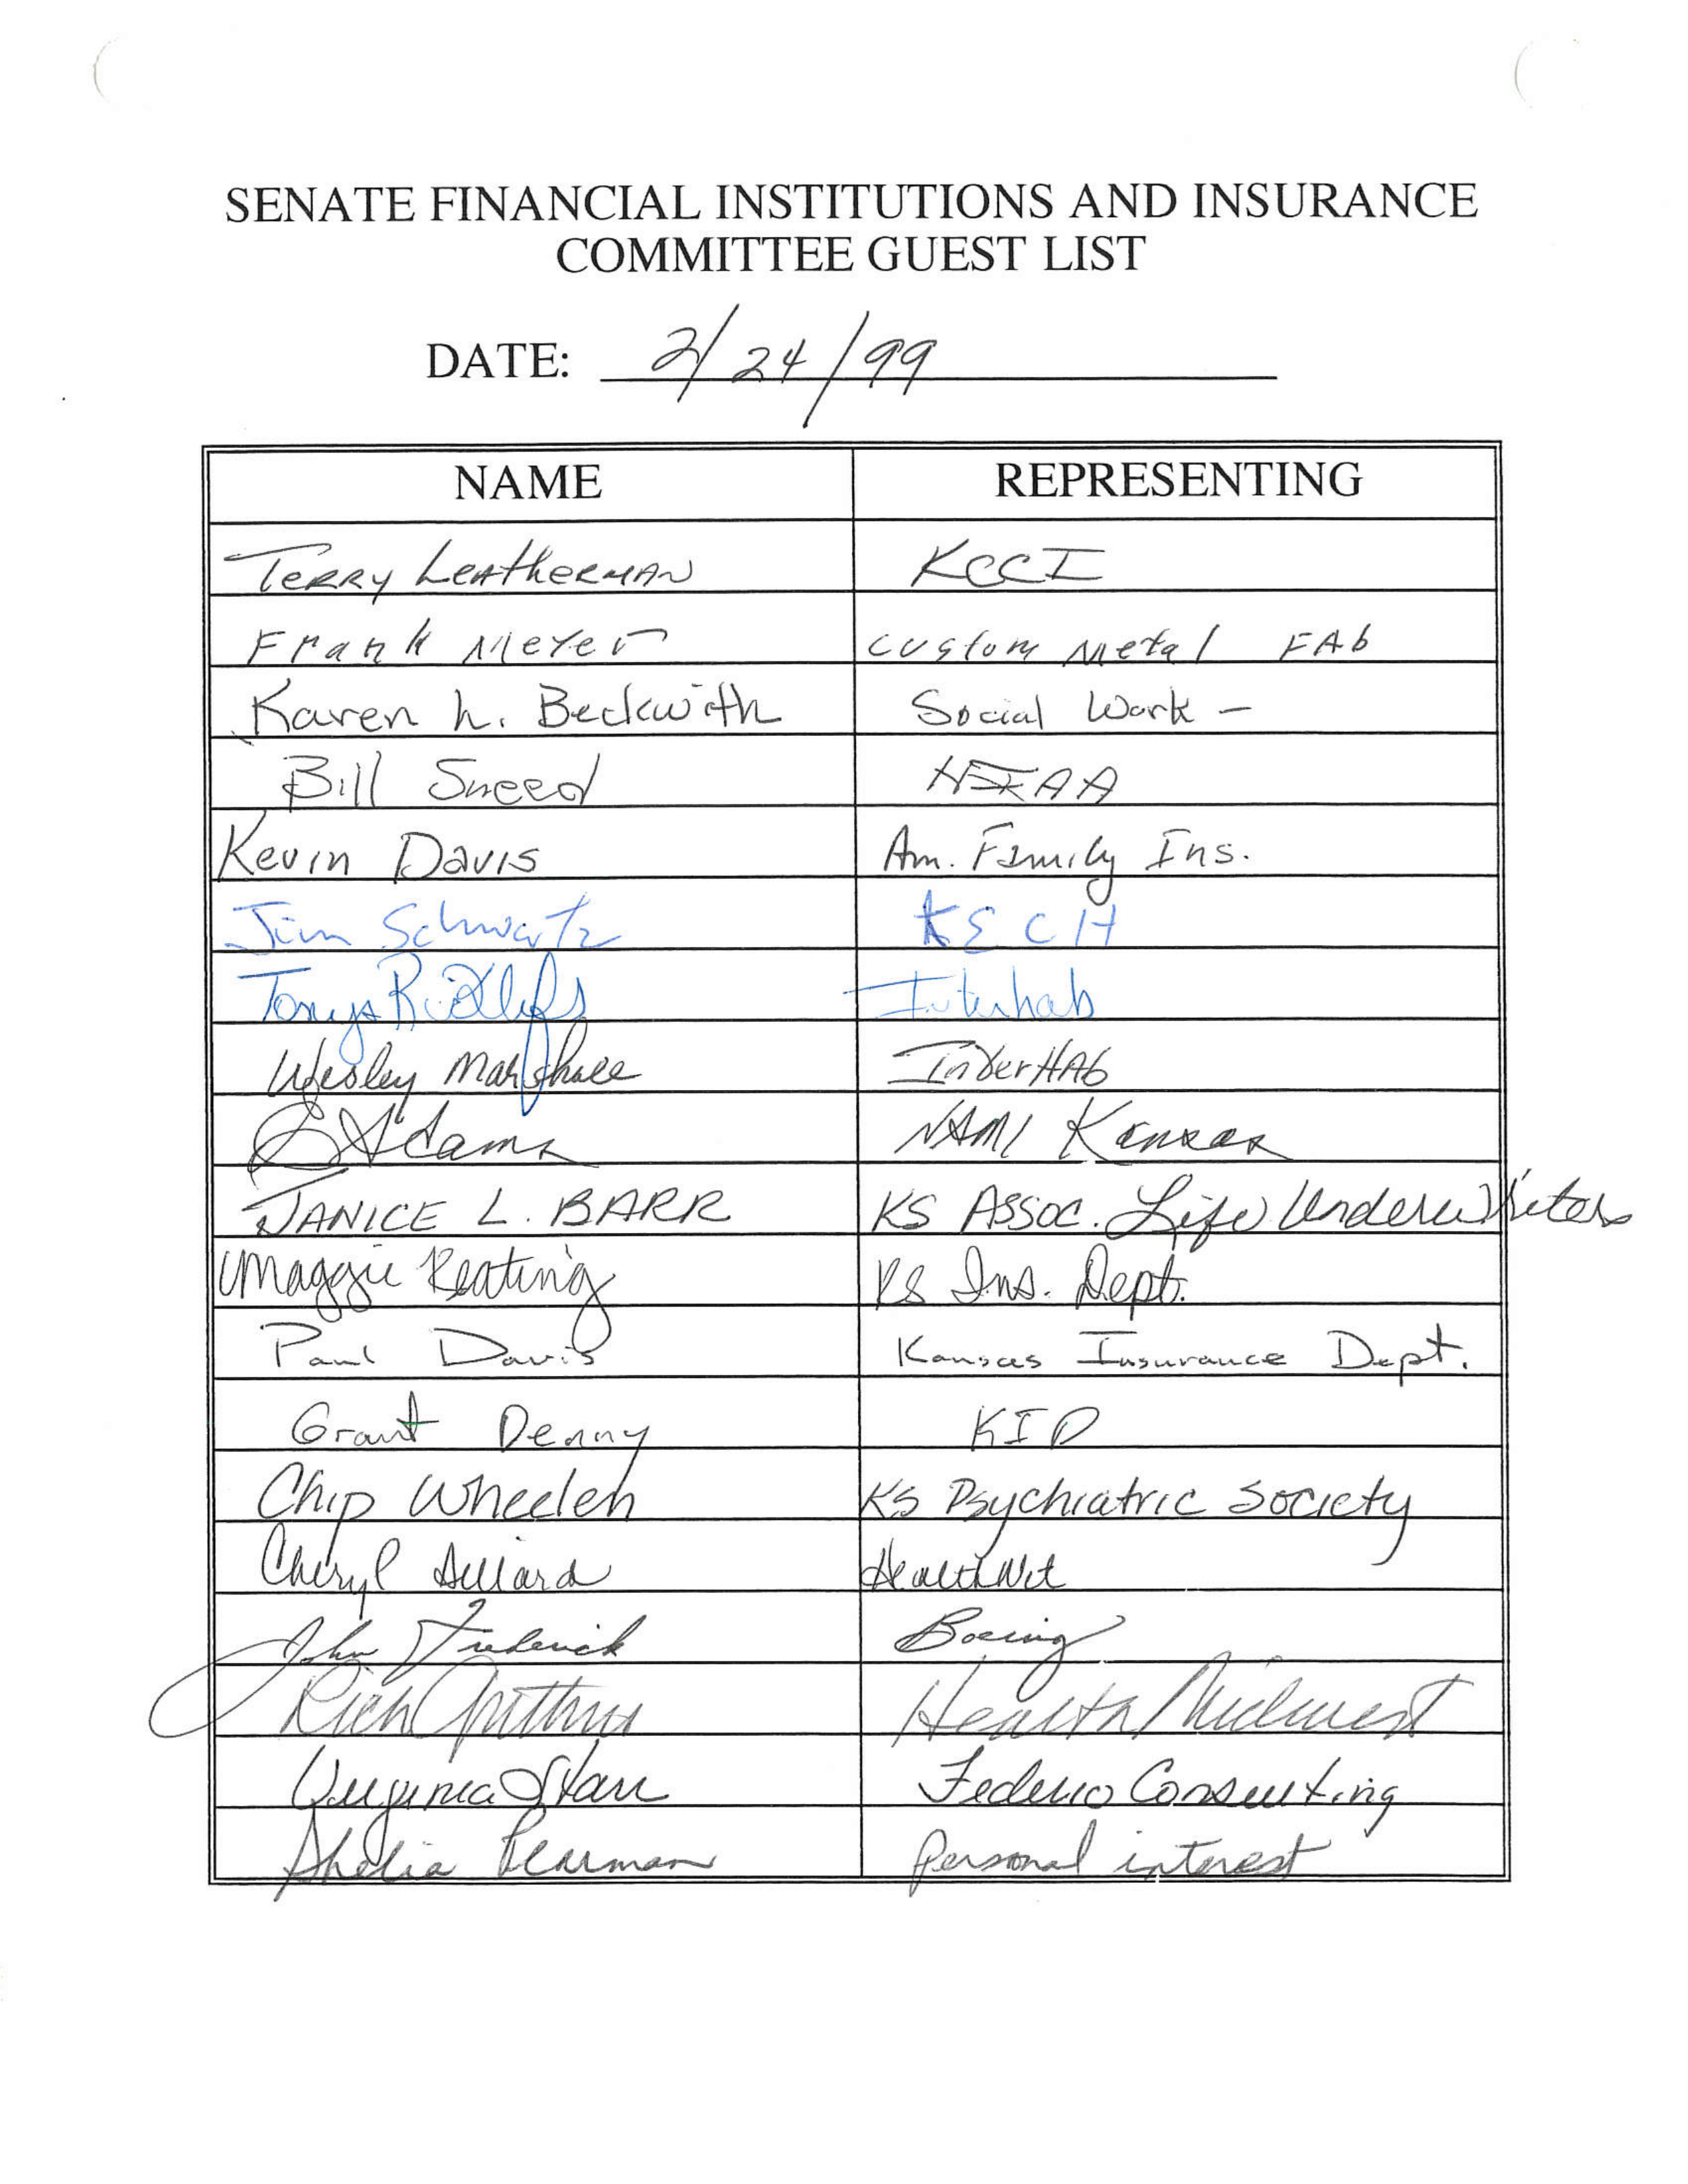 SENATE FINANCIAL INSTITUTIONS AND INSURANCE
COMMITTEE GUEST LIST
DATE: 2/24/99
NAME REPRESENTING
Terry Leatherman KCCI
Frank Meyer Custom Metal FAb
Karen L. Beckwith Social Work -
Bill Sneed HIAA
Kevin Davis Am. Family Ins.
Jim Schwartz KECH
Tonya Interhab
Wesley Marshall InterHAb
E Adams NAMI Kansas
JANICE L. BARR KS ASSOC. Life Underwriters
Maggie Keating KS Ins. Dept.
Paul Davis Kansas Insurance Dept.
Grant Denny KID
Chip Wheelen KS Psychiatric Society
Cheryl Dillard HealthNet
John Frederick Boeing
Rich Guthrie Health Midwest
Virginia Starr Federico Consulting
Shelia Pearman Personal interest